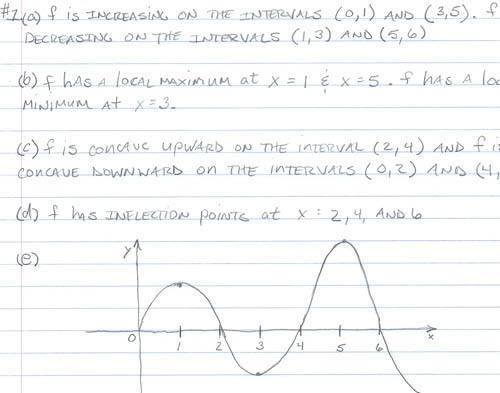 #1(a) f is INCREASING ON THE INTERVALS (0,1) AND (3,5). f
DECREASING ON THE INTERVALS (1,3) AND (5,6)
(b) f HAS A LOCAL MAXIMUM at x = 1 & x = 5. f HAS A
MINIMUM AT x = 3.
(c) f IS CONCAVE UPWARD ON THE INTERVAL (2,4) AND f
CONCAVE DOWNWARD ON THE INTERVALS (0,2) AND (4,
(d) f HAS INFLECTION POINTS at x = 2, 4, AND 6
(e)
y
0 1 2 3 4 5 6 x